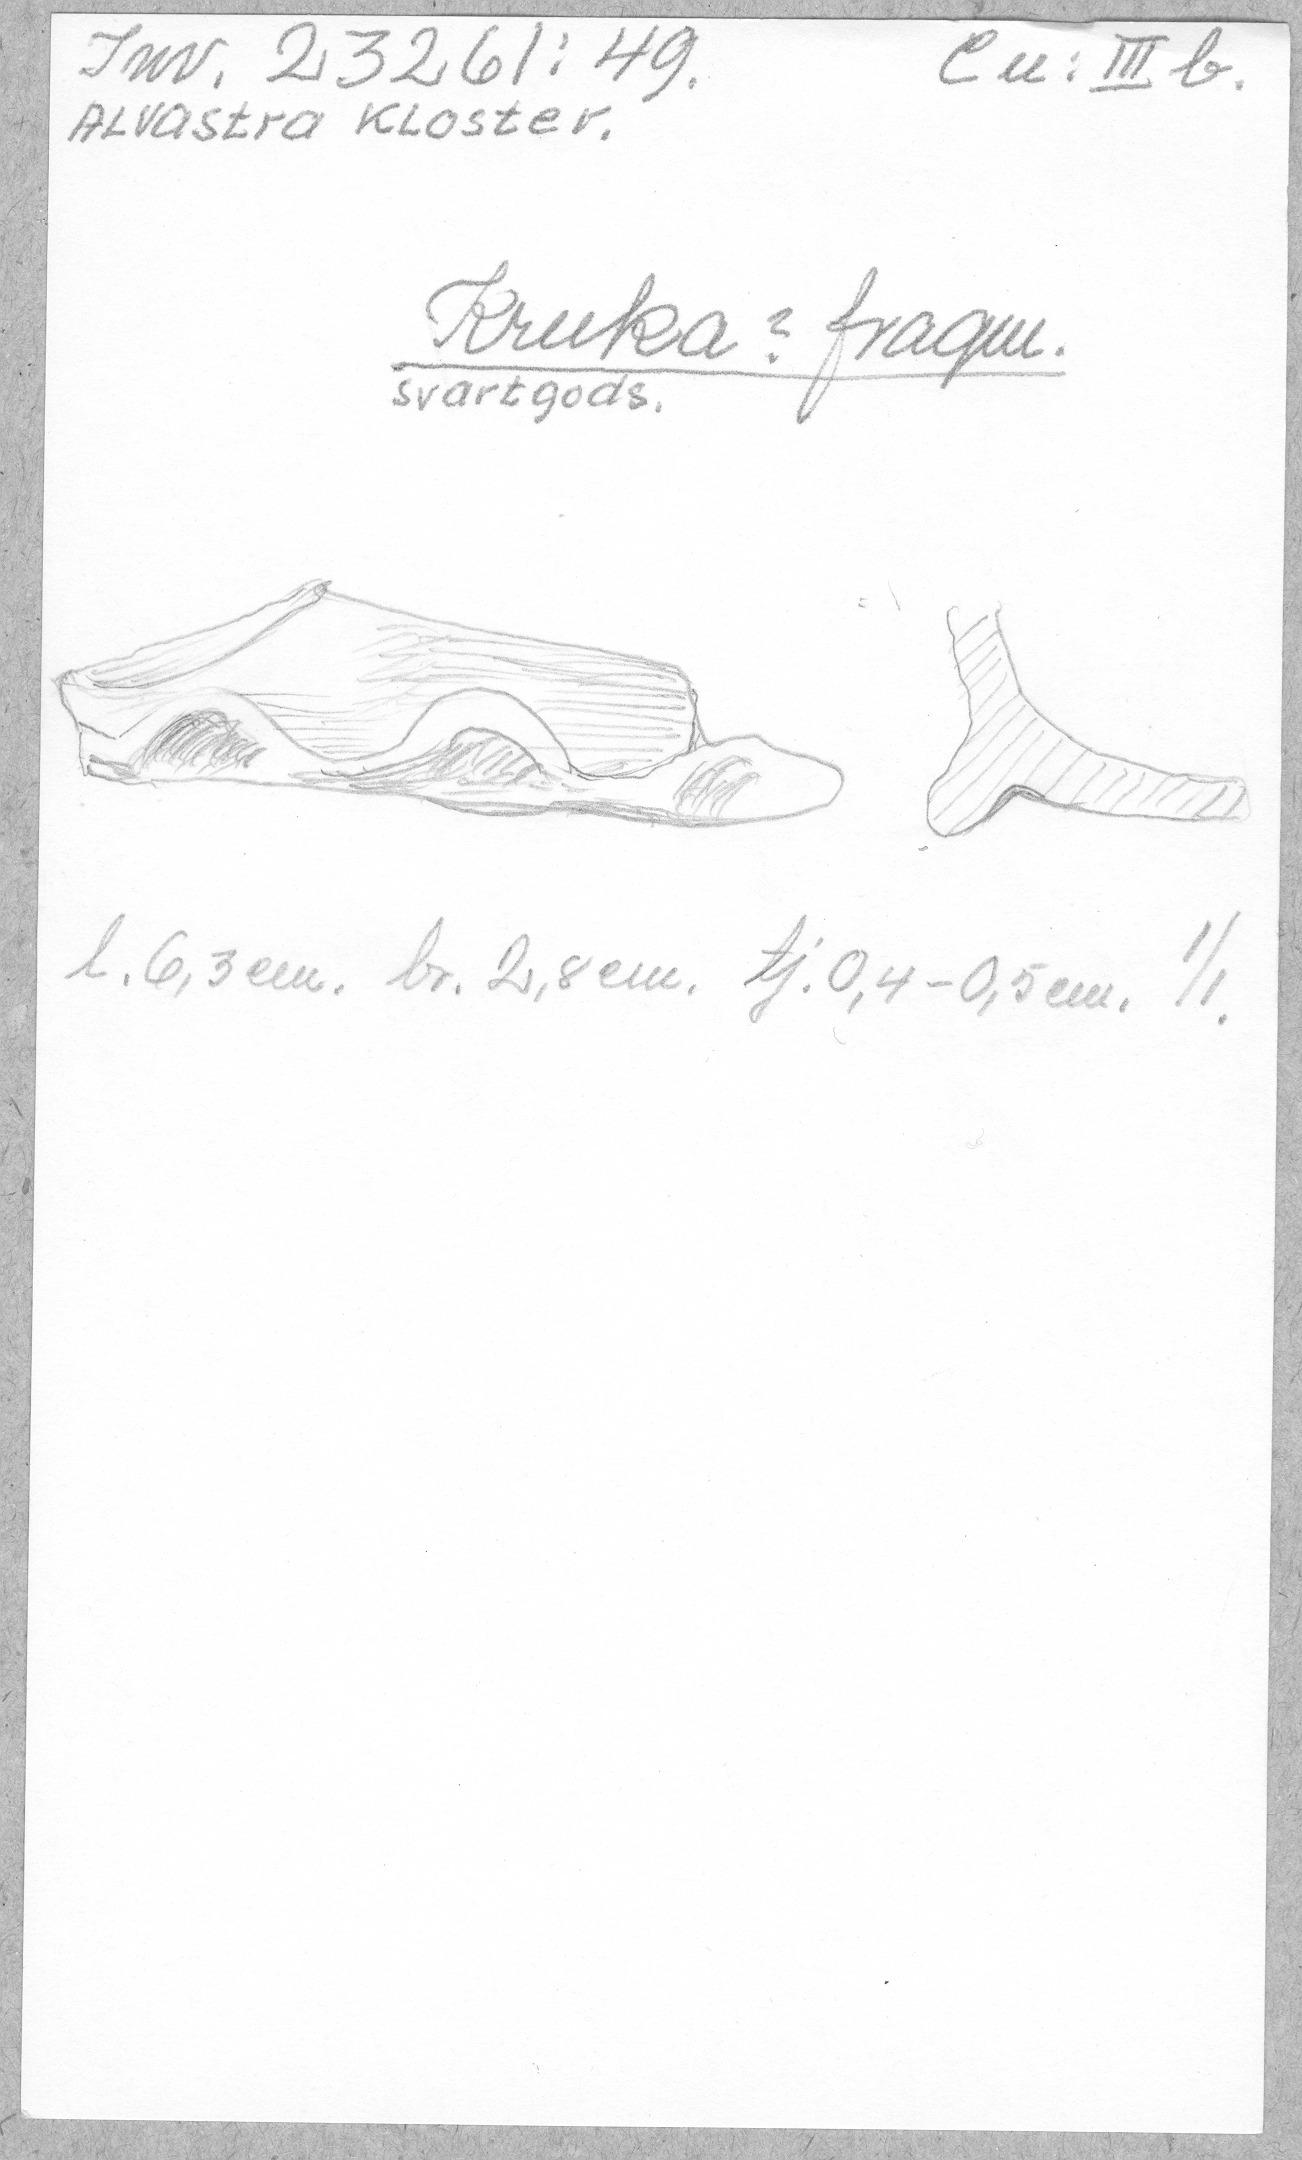 Inv. 23261: 49. Cu: III b.
ALVastra KLoster.
Kruka? fragm.
svartgods.
l. 6,3 cm. br. 2,8 cm. tj. 0,4 - 0,5 cm. 1/1.